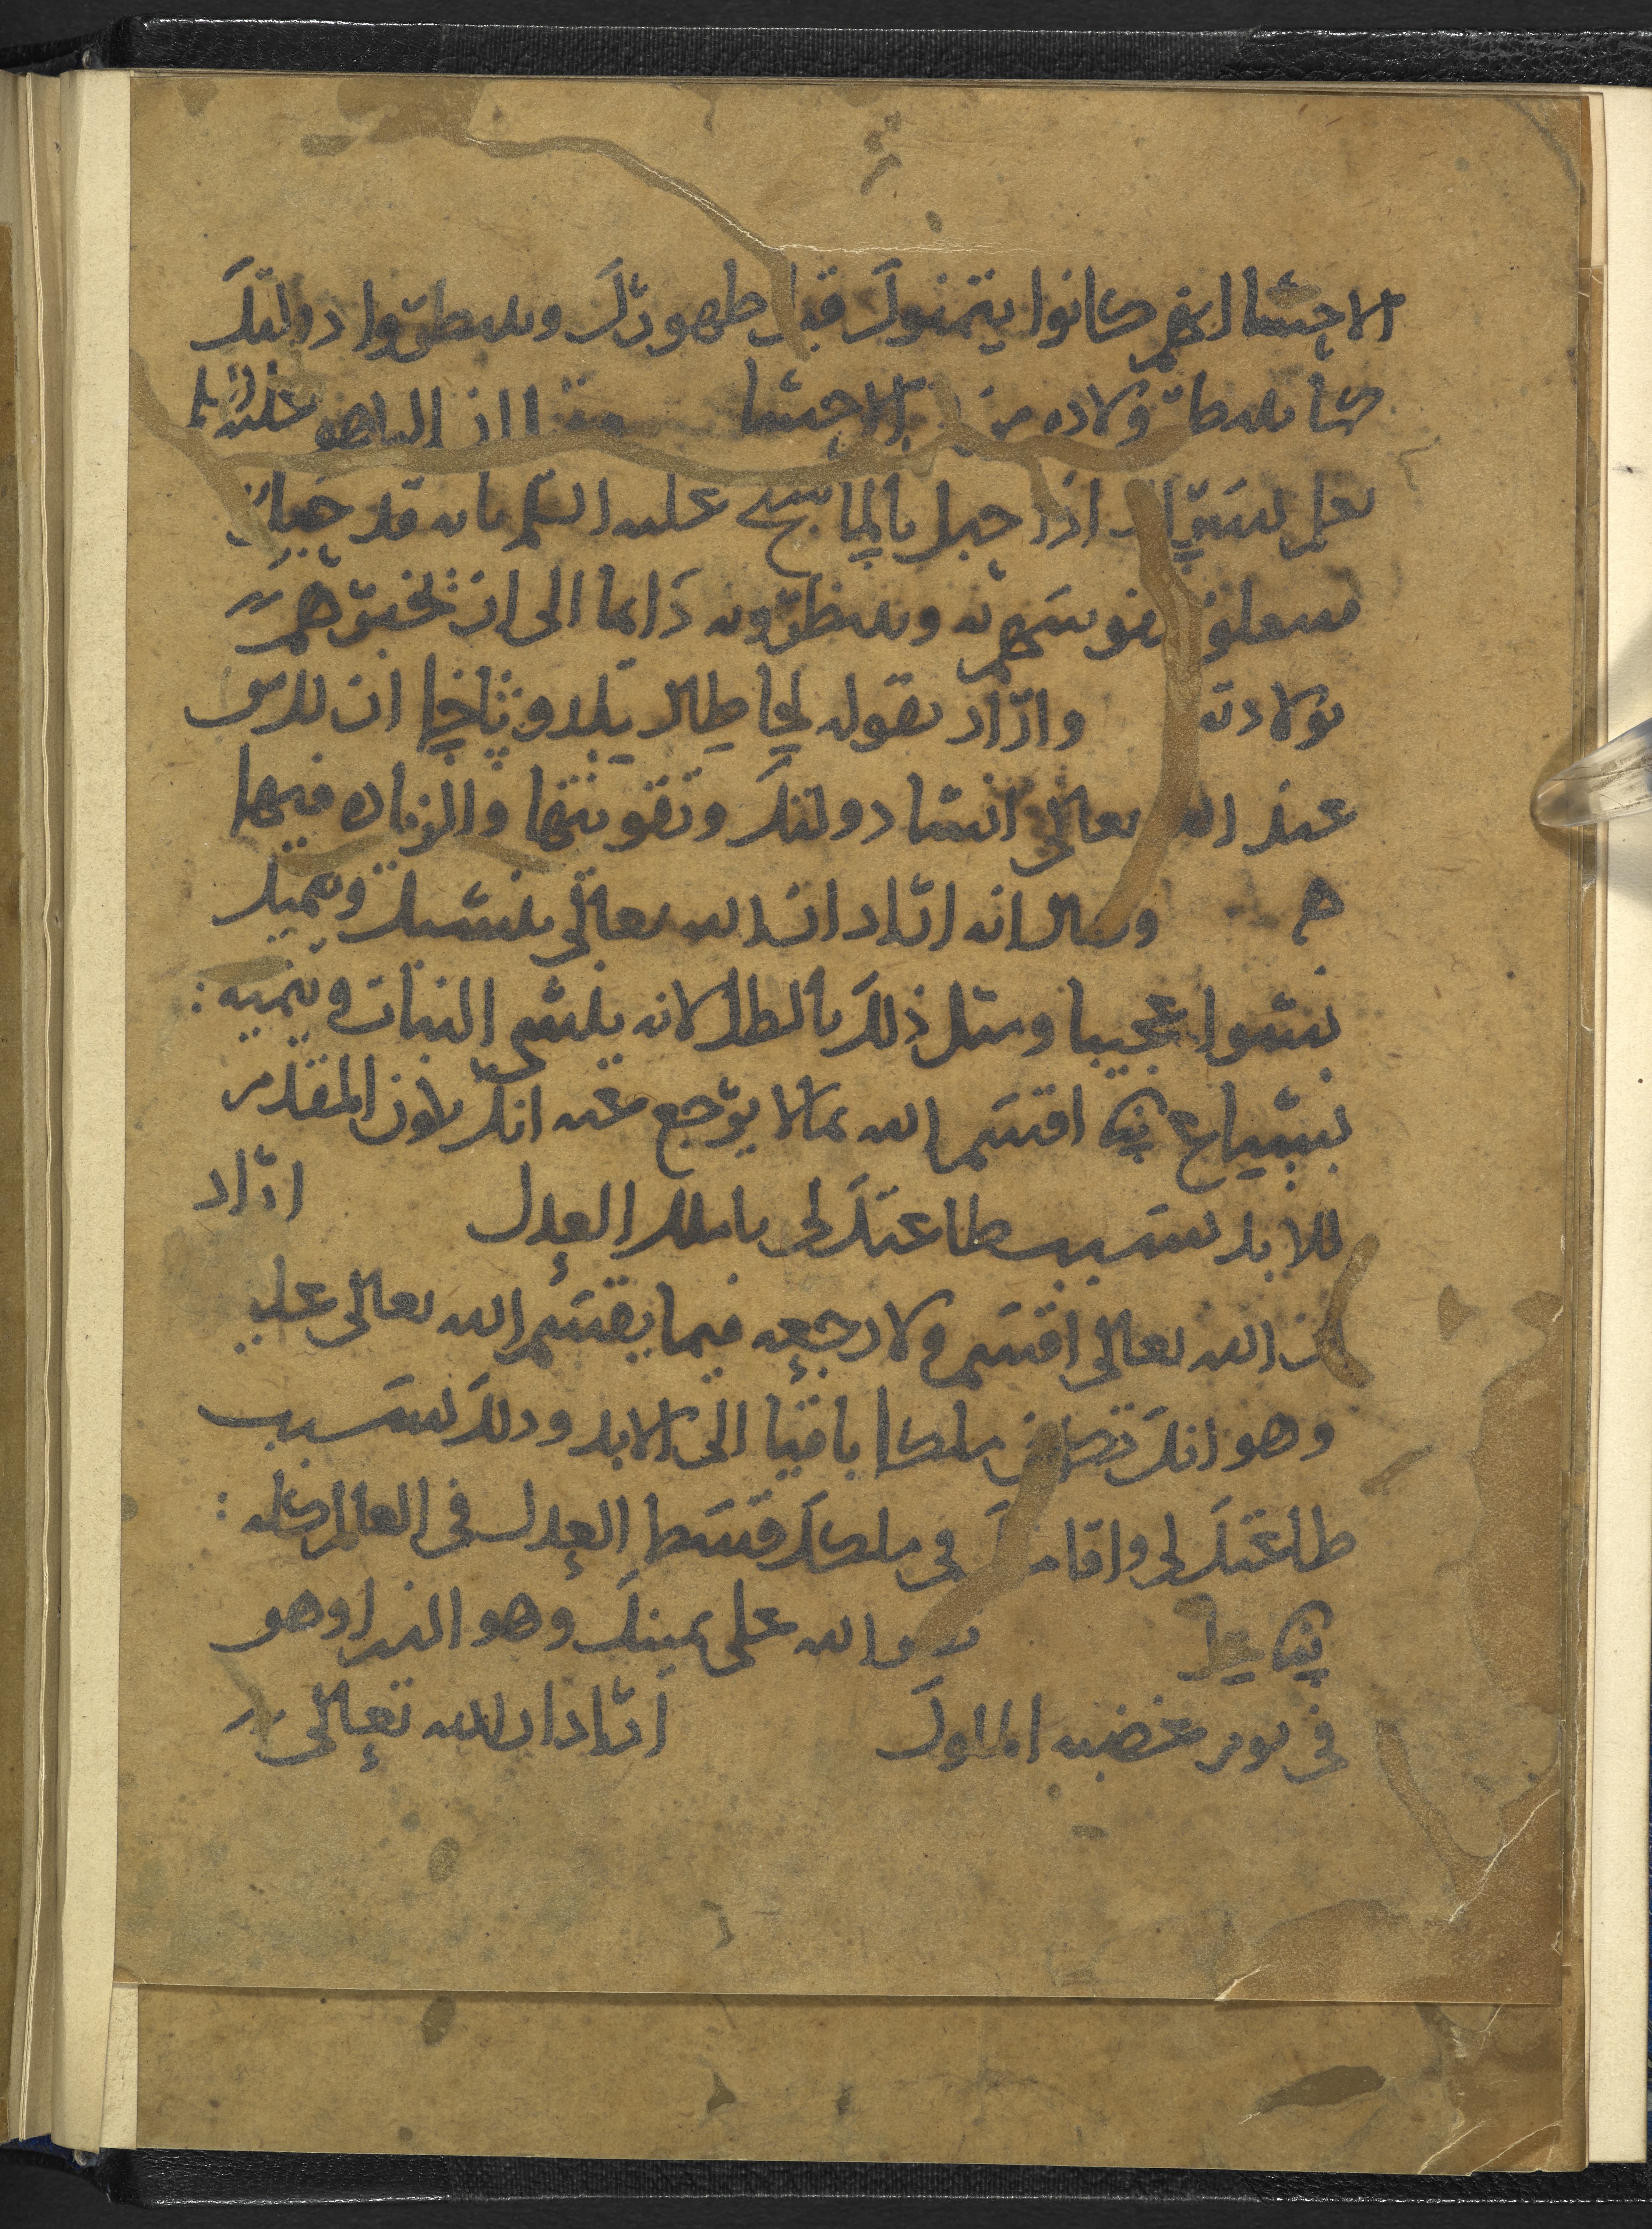 الاحشا لانهم كانوا يتمنوك قبل ظهورك وينتظروا دولتك
كما ينتظر ولاده من الاحشا مثل ان الباهو
يعلم اذا حبل بالماشيح عليه السلم بانه قد حبل
نفوسهم به وينتظرونه دايما الى ان تخبرهم
بولادته واراد بقوله لخا طال يلدوثاخا ان لك
عند الله تعالى انشا دولتك وتقويتها والزياده فيها
وقال انه اراد ان الله تعالى ينشيك وينميك
نشوا عجيبا ومثل ذلك بالطل لانه ينشي النبات وينميه :
نشباع ييي اقسم الله بما لا يرجع عنه انك تكون المقدم
للابد بسبب طاعتك لي يا ملك العدل اراد
ان الله تعالى اقسم ولا رجعه فيما يقسم الله تعالى عليه
وهو انك تكون ملكا باقيا الى الابد وذلك بسبب
طاعتك لي واقامتك في ملكك قسط العدل في العالم كله :
ييي عل والله على يمينك وهو الذي اوهو
في يوم غضبه الملوك اراد ان الله تعالى